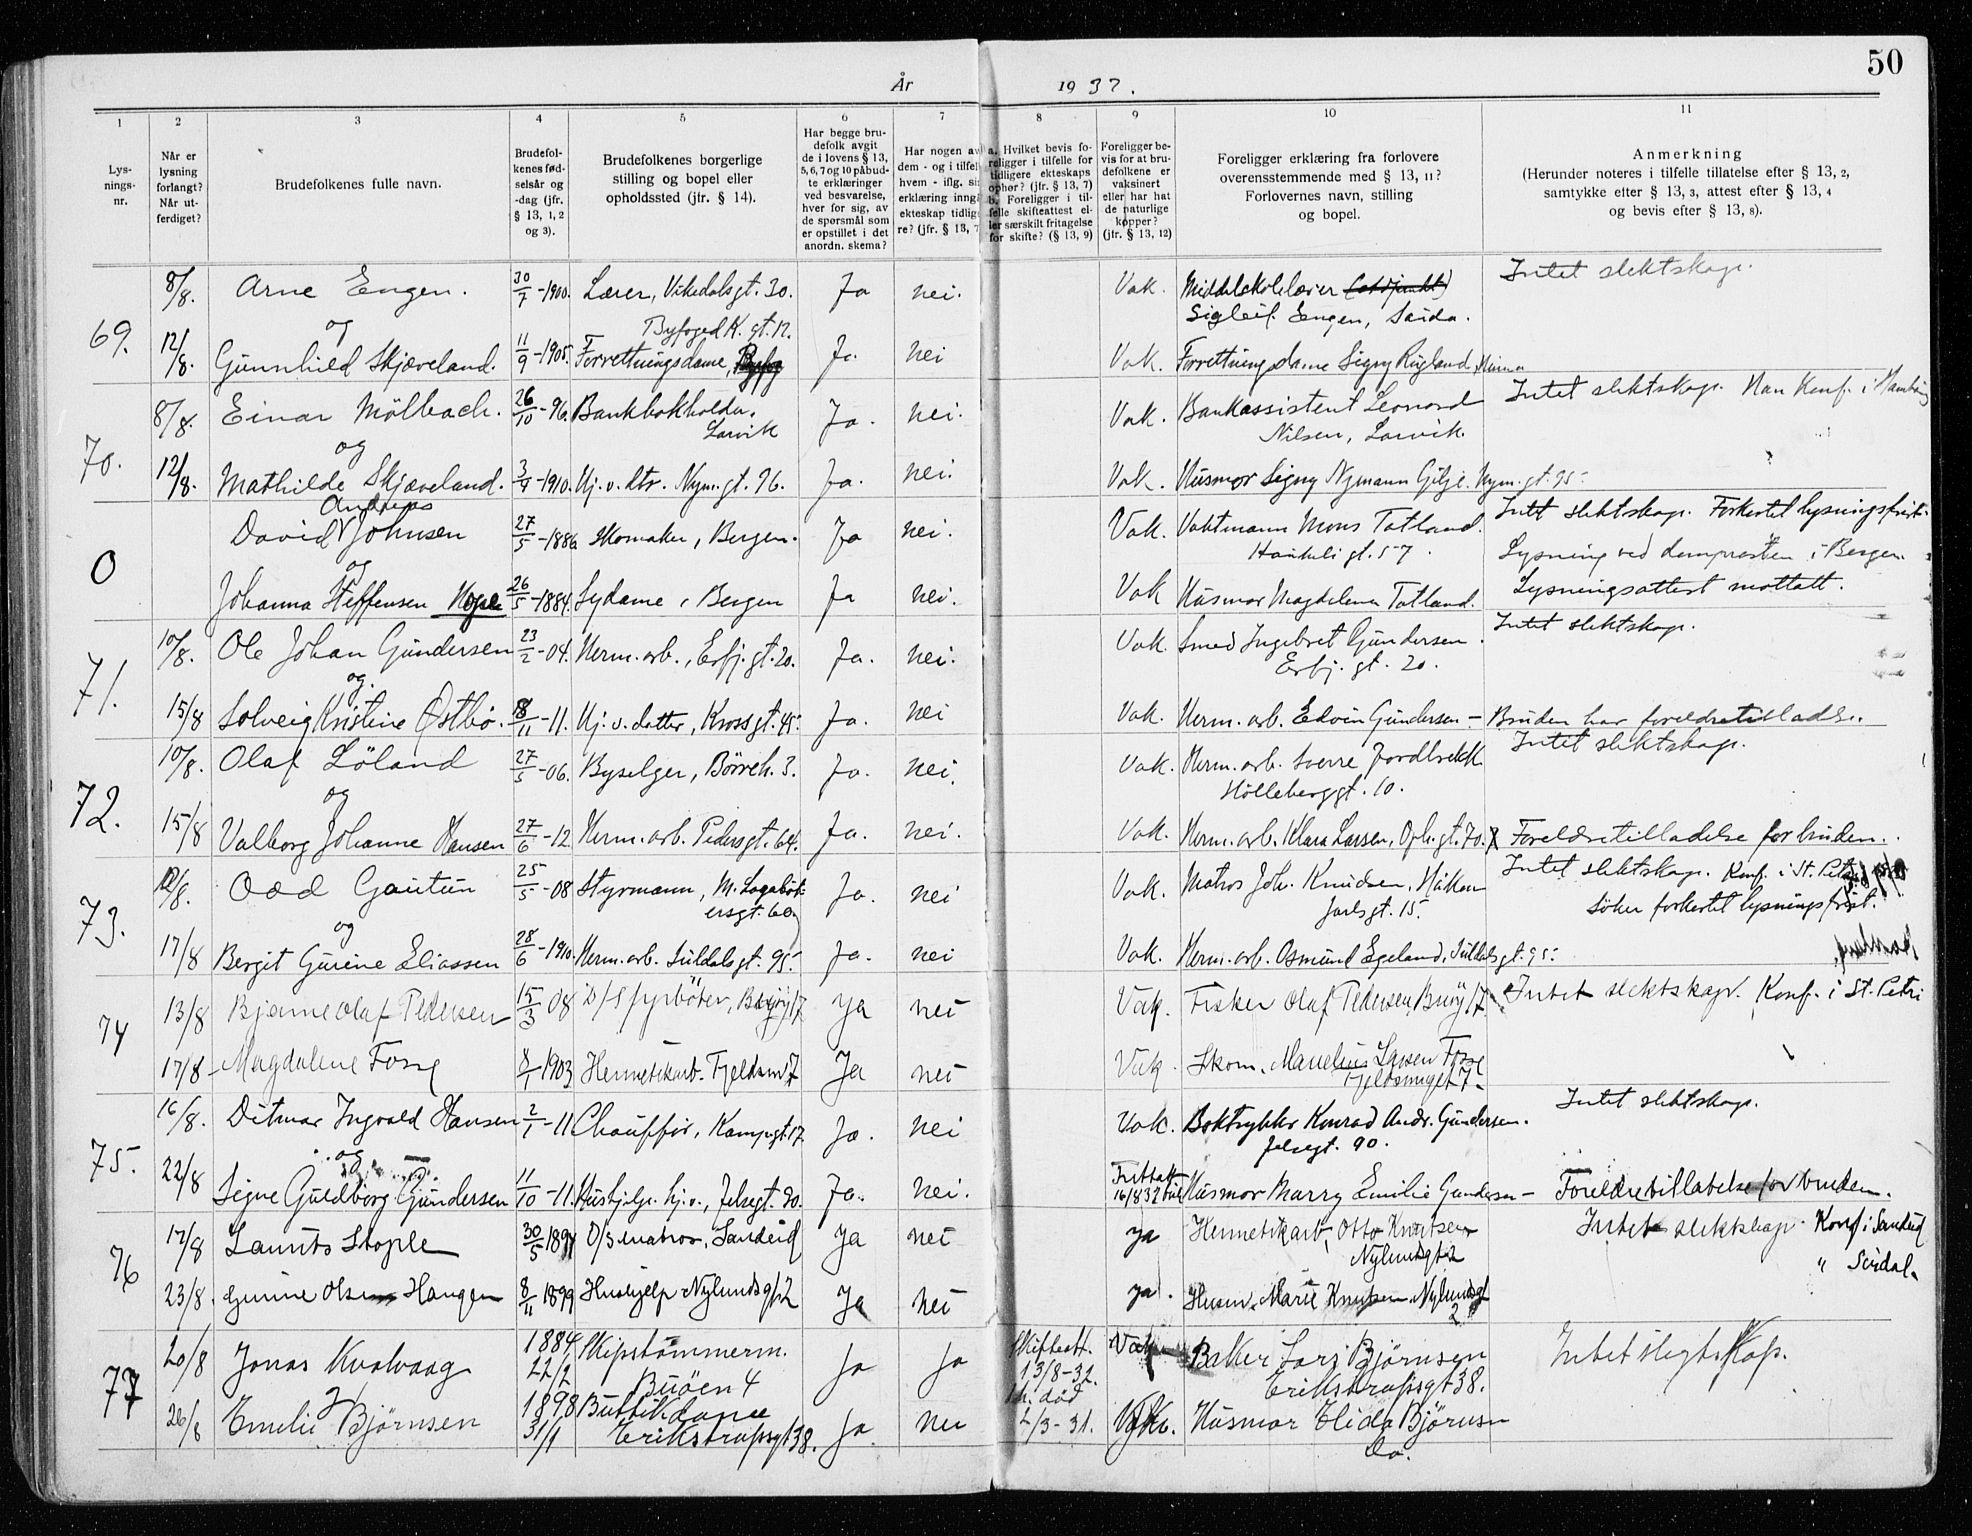 50
År 1932.
1 2 3 4 5 6 7 8 9 10 11
Lysningsnr.
Når er lysning forlangt? Når utferdiget?
Brudefolkenes fulle navn.
Brudefolkenes fødselsår og -dag (jfr. § 13, 1, 2 og 3).
Brudefolkenes borgerlige stilling og bopel eller opholdssted (jfr. § 14).
Har begge brudefolk avgit de i lovens § 13, 5, 6, 7 og 10 påbudte erklæringer ved besvarelse, hver for sig, av de spørsmål som er opstillet i det anordn. skema?
Har nogen av dem - og i tilfelle hvem - iflg. si erklæring inng ekteskap tidlig re? (jfr. § 13, 7
a. Hvilket bevis foreligger i tilfelle for tidligere ekteskaps ophør? (jfr. § 13, 7) b. Foreligger i tilfelle skifteattest eller særskilt fritagelse for skifte? (§ 13, 9)
Foreligger bevis for at brudefolkene er vaksinert eller har hat de naturlige kopper? (jfr. § 13, 12)
Foreligger erklæring fra forlovere overensstemmende med § 13, 11? Forlovernes navn, stilling og bopel.
Anmerkning (Herunder noteres i tilfelle tillatelse efter § 13, 2, samtykke efter § 13, 3, attest efter § 13, 4 og bevis efter § 13, 8).
8/8. Arne Engen. 30/7-1900. Lærer, Vikedalsgt. 30. Ja nei. Vak. Middelskolelærer Sigleif Engen, Sauda. Intet slektskap.
69. og
12/8. Gunnhild Skjæveland. 11/9-1905. Forretningsdame, Byfoged K. gt. 12. Ja. nei Vak. Forretningsdame Signy Rugland,
8/8. Einar Mölbach. 26/10-96. Bankbokholder. Larvik Ja. nei. Vak. Bankassistent Leonard Nilsen, Larvik. Intet slektskap. Han konf. i
70. og
12/8. Mathilde Skjæveland. 3/9-1910. Hj. v. dtr. Nym. gt. 76. Ja. nei. Vak. Husmor Signy Nymann Gilje. Nym. gt. 95
David Andreas Johnsen 27/5-1886 Skomaker, Bergen. Ja nei. Vak. Vaktmann Mons Tatland. Haukeligt. 57. Intt slektskap. Forkortet lysningsfrist.
0 og Lysning ved domprosten i Bergen.
Johanna Steffensen Hope 26/5-1884. Sydame, Bergen Ja nei. Vak Husmor Magdalena Tatland. Lysningsattest mottatt.
10/8. Ole Johan Gundersen 23/2-04. Herm. arb., Erfj. gt. 20. Ja. nei. Vak. Smed Ingebret Gundersen. Erfj. gt. 20. Intet slektskap.
71. og.
15/8 Solveig Kristine Østbö. 18/11-11. Hj. v. datter, Krossgt. 45. Ja. nei Vak. Herm. arb. Edvin Gundersen - Bruden har foreldretilladelse.
10/8. Olaf Löland 27/5-06. Byselger, Börreh. 3. Ja. nei. Vak. Herm. arb. Sverre Jordbrekk Hölleberggt. 10. Intet slektskap.
72. og
15/8 Valborg Johanne Hansen 27/6-12. Herm. arb. Pedersgt. 64. Ja. nei. Vak. Herm. arb. Klara Larsen, Oph. gt. 70. Foreldretilladelse for bruden.
12/8. Odd Gautun 25/5-08 Styrmann, M. Lagabötersgt. 60 Ja. nei Vak. Matros Joh. Knudsen, Håkon Jarlsgt. 15. Intet slektskap. Konf. i St. Petri Söker forkortet lysningsfrist.
73. og
17/8 Bergit Gurine Eliassen 28/6-1910. Herm. arb. Suldalsgt. 95. Ja. nei Vak. Herm. arb. Osmund Egeland, Suldalsgt. 95.
13/8 Bjarne Olaf Pedersen 15/3 08 D/S fyrböter, Buöy 17 Ja nei Vak. Fisker Olaf Pedersen, Buöy 17 Intet slektskap. Konf. i St. Petri
74
17/8 Magdalene Fosse 8/1 1903 Hermetikarb. Fjeldsm. 7 Ja nei Vak. Skom. Larsen Fosse Fjeldsmuget 7.
16/8. Ditmar Ingvald Hansen 2/1-11 Chauffør, Kampgt. 17 Ja. nei Vak. Boktrykker Konrad Andr. Gundersen. Jelsegt. 90. Intet slektskap.
75. og
22/8 Signe Guldborg Gundersen 11/10-11. Hushjelp hj. v., Jelsegt. 90. Ja. nei. Fritatt 16/8 32 Husmor Marry Emilie Gundersen - Foreldretillatelse for bruden.
17/8 Laurits Stople 30/5 1894 D/s matros, Sandeid Ja nei ja Hermetikarb. Otto Knutsen Nylundsgt 2 Intet slektskap. Konf. i Sandeid
76
23/8. Gurine Olsen Haugen 8/11 1899 Hushjelp Nylundsgt 2 Ja nei ja. Husm. Marie Knutsen Nylundsgt 2 " Sirdal.
20/8 Jonas Kvalvaag 1884 22/2 Skipstömmerm. Buöen 4 Ja Ja Skifteatt. 13/8-32. h. död 2/3-31. Vak Baker Lars Björnsen Erikstrupsgt 38. Intet slegtskap.
77 og
26/8 Emelie Björnsen 1898 31/1 Butikkdame Erikstrupsgt 38. Ja. nei Vak. Husmor Elida Björnsen Do.